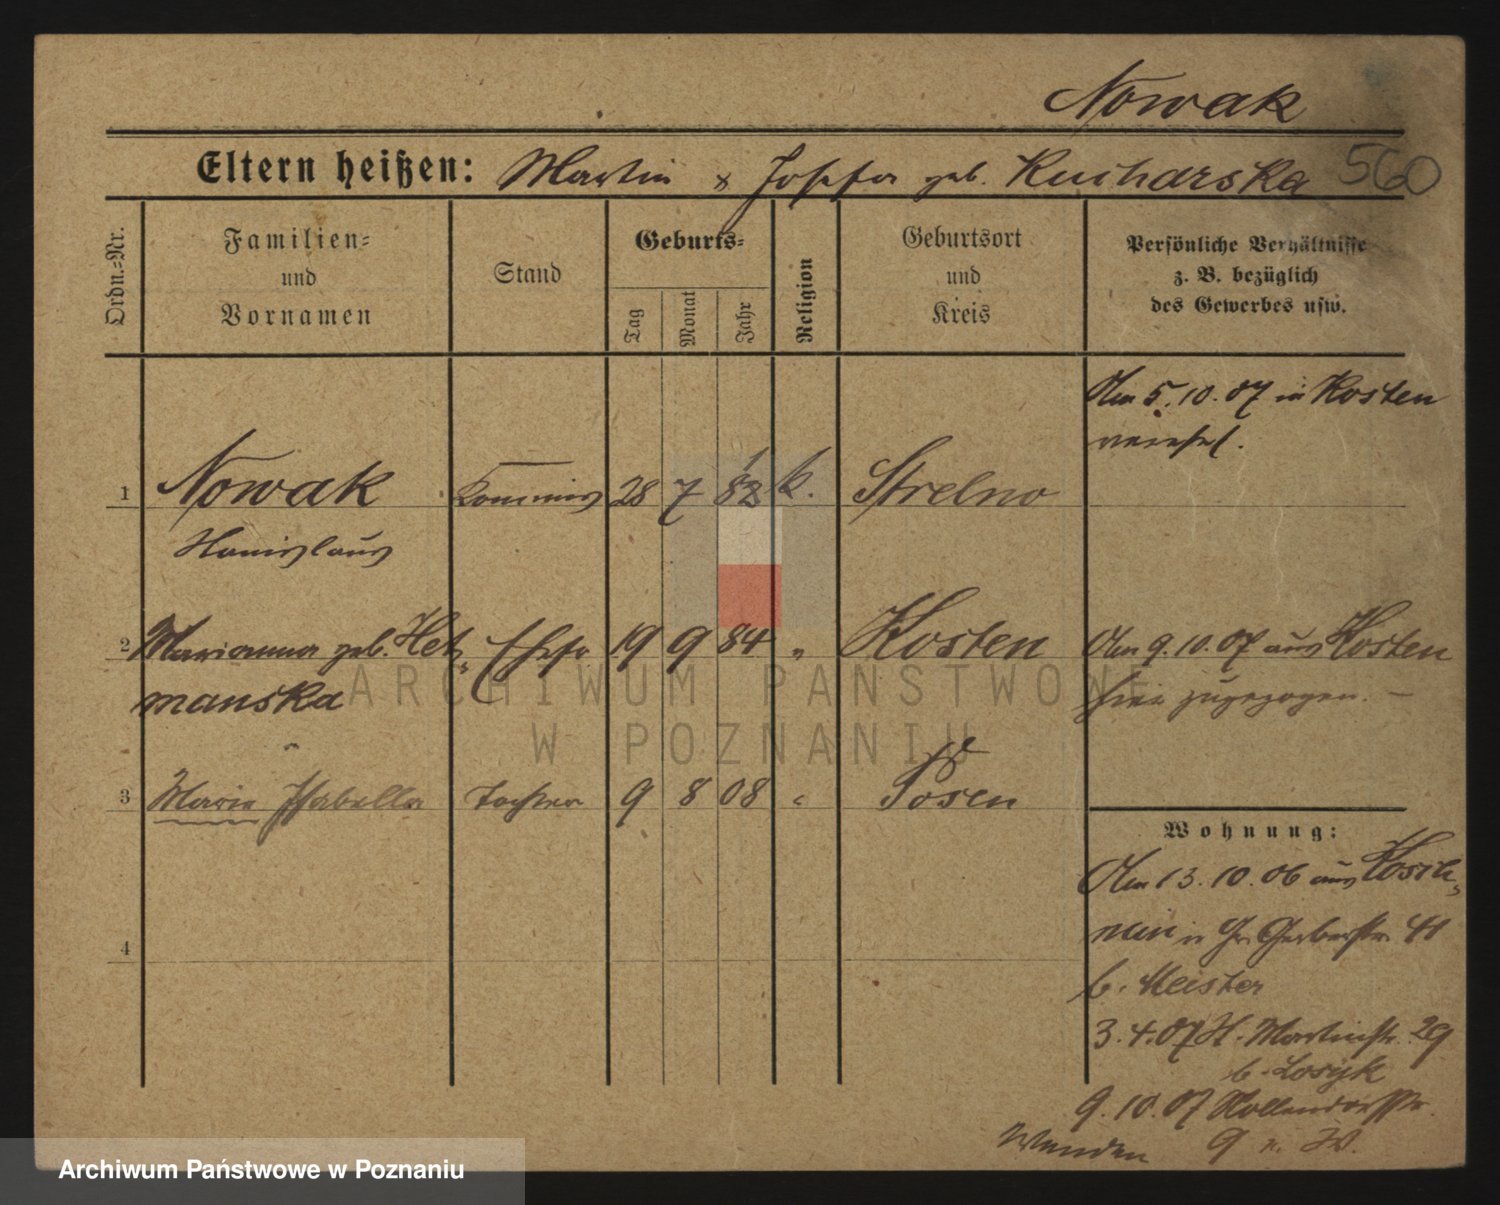 Nowak
Eltern heißen: Martin & Josefa geb. Kucharska 560
Ordn.=Nr.
Familien=
und
Vornamen
Stand
Geburts=
Tag
Monat
Jahr
Religion
Geburtsort
und
Kreis
Persönliche Verhältnisse
z. B. bezüglich
des Gewerbes usw.
Am 5.10.07 in Kosten
1 Nowak Kommis 28 7 82 k. Strelno
Stanislaus
2 Marianna geb. Het- Ehefr 19 9 84 " Kosten
manska
Am 9.10.07 aus Kosten
hier zugezogen. —
3 Marie Isabella Tochter 9 8 08 " Posen
4
Wohnung:
Am 13.10.06 aus
in Gr. Gerberstr. 41
b. Meister
3.4.07 St. Martinstr. 29
b. Losyk
9.10.07
9 n. W.
ARCHIWUM PAŃSTWOWE
W POZNANIU
Archiwum Państwowe w Poznaniu